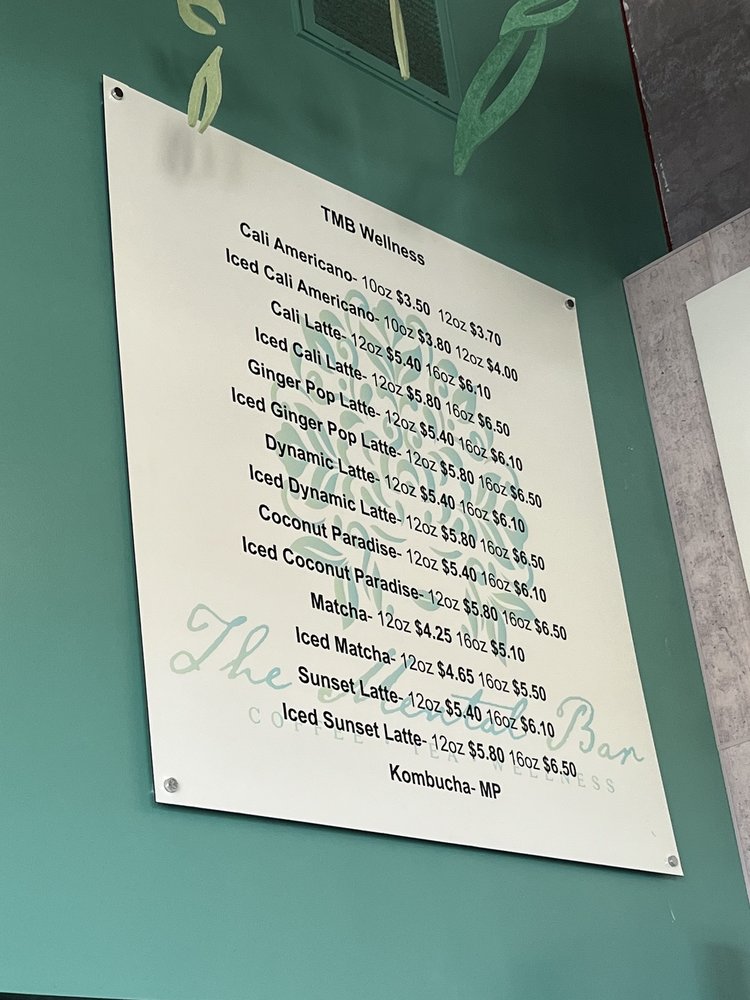 TMB Wellness
Cali Americano- 10oz $3.50 12oz $3.70
Iced Cali Americano- 10oz $3.80 12oz $4.00
Cali Latte- 12oz $5.40 16oz $6.10
Iced Cali Latte- 12oz $5.80 16oz $6.50
Ginger Pop Latte- 12oz $5.40 16oz $6.10
Iced Ginger Pop Latte- 12oz $5.80 16oz $6.50
Dynamic Latte- 12oz $5.40 16oz $6.10
Iced Dynamic Latte- 12oz $5.80 16oz $6.50
Coconut Paradise- 12oz $5.40 16oz $6.10
Iced Coconut Paradise- 12oz $5.80 16oz $6.50
Matcha- 12oz $4.25 16oz $5.10
Iced Matcha- 12oz $4.65 16oz $5.50
Sunset Latte- 12oz $5.40 16oz $6.10
Iced Sunset Latte- 12oz $5.80 16oz $6.50
Kombucha- MP
The Mental Bar
COFFEE · TEA · WELLNESS